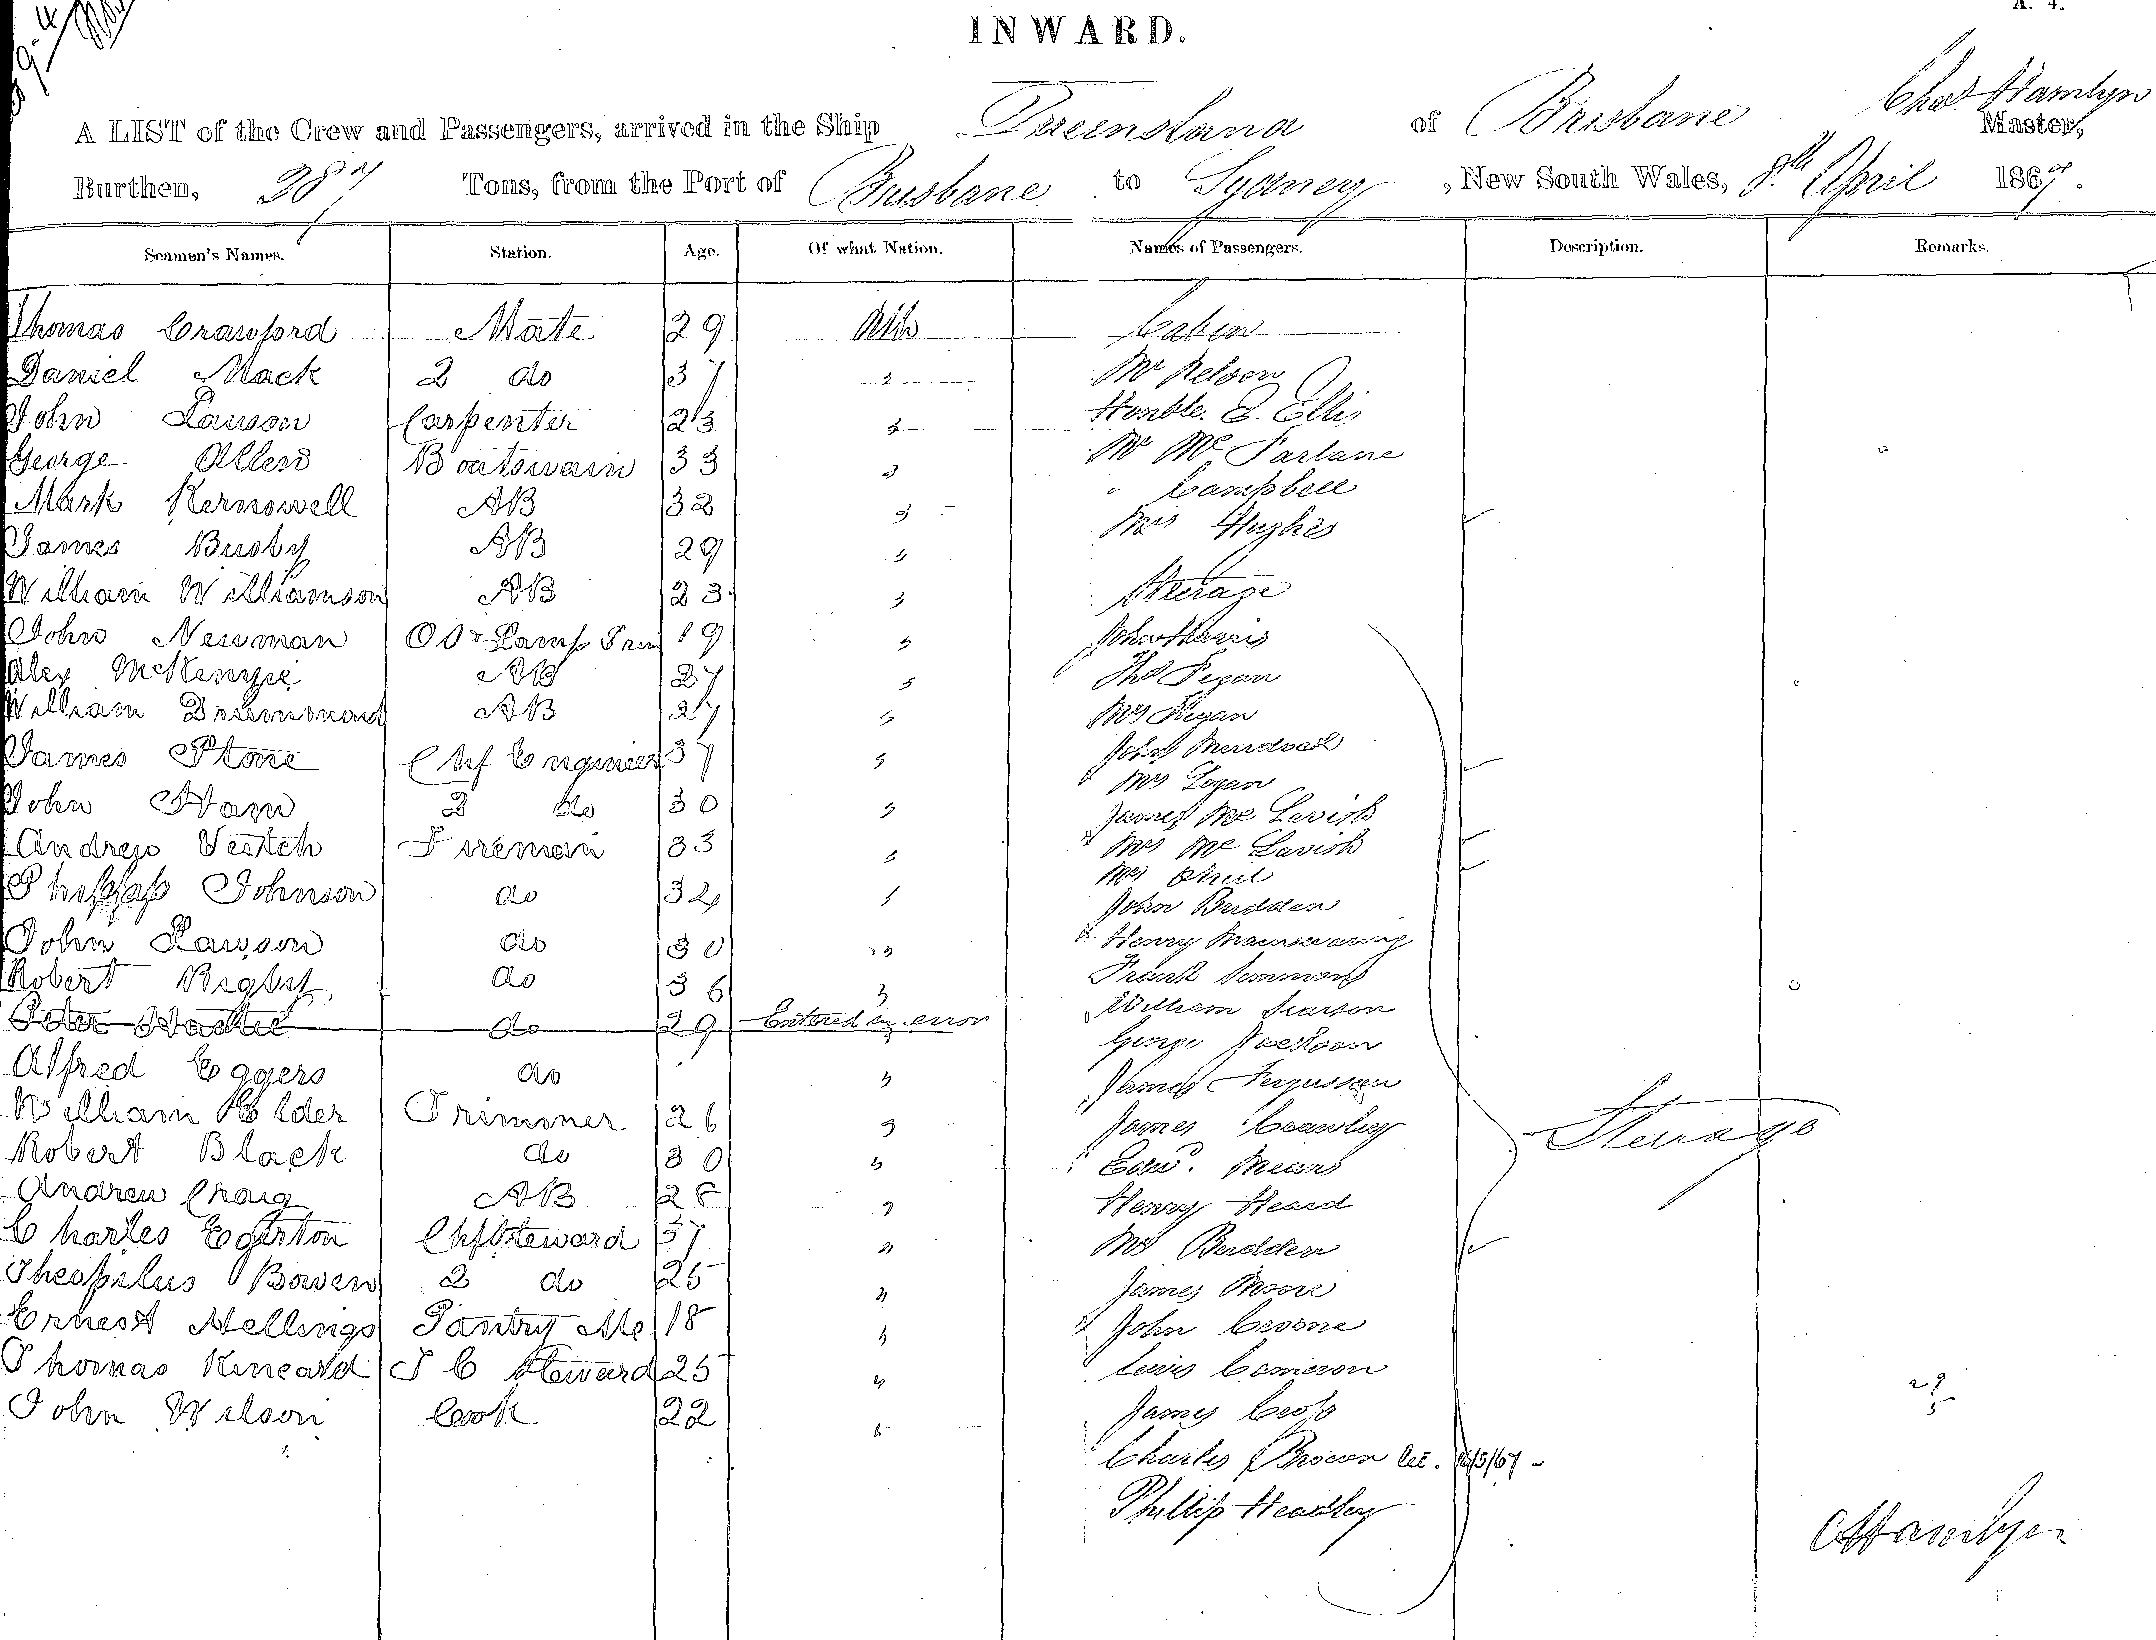 A. 4.
INWARD.
A LIST of the Crew and Passengers, arrived in the Ship Queensland of Brisbane Chas Hamlyn Master,
Burthen, 287 Tons, from the Port of Brisbane to Sydney, New South Wales, 8th April 1867.
Seamen's Names. Station. Age. Of what Nation. Names of Passengers. Description. Remarks.
Thomas Crawford Mate 29 Cabin
Daniel Mack 2 do 37 Mr Nelson
John Lawson Carpenter 23 Honble. E. Ellis
George Allen Boatswain 33 Mr McFarlane
Mark Kernowell AB 32 " Campbell
James Busby AB 29 Mrs Hughes
William Williamson AB 23 Steerage
John Newman OS & Lamp Trim 19 John Harris
Alex McKenzie AB 27 Thos Fegan
William Drummond AB 27 Mrs Fegan
James Stone Chf Engineer 37 John
John Ham 2 do 30 Mrs Logan
Andrew Veitch Fireman 33 James Mc Lavish
Johnson do 32 Mrs Mc Lavish
Mrs
John Lawson do 30 John Budden
Robert Bigby do 36 Henry Mainwaring
Peter do 29 Entered in error Frank
William Pearson
George
Alfred Eggers do James Fergusson
William Holder Trimmer 26 James Crawley
Steerage
Robert Black do 30 Edwd. Means
Andrew Craig AB 28 Henry Heard
Charles Egerton Chf Steward 37 Mrs Budden
Theophilus Bowen 2 do 25 James Moore
Ernest Mellings Pantry Mn 18 John Greene
Thomas Kincard F C Steward 25 Lewis Cameron
John Wilson Cook 22 James
Charles Brown
Phillip Headley
CHamlyn